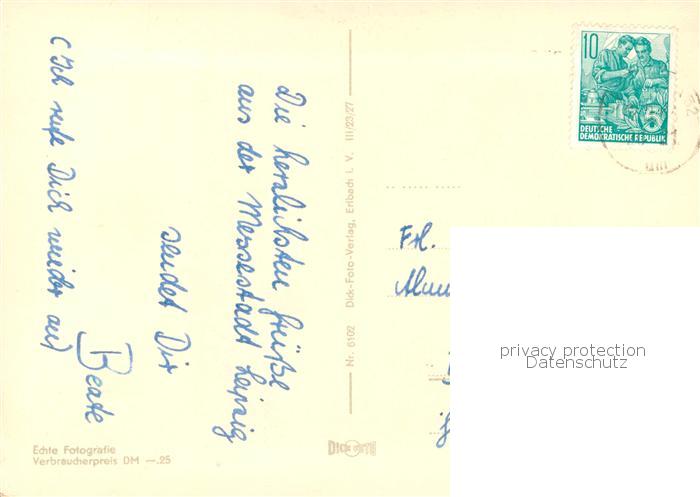 Die herzlichsten Grüße
aus der Messestadt Leipzig
sendet Dir
Beate
(Ich rufe Dich wieder an)
Echte Fotografie
Verbraucherpreis DM —.25
Nr. 6102 Dick-Foto-Verlag, Erlbach i. V. III/23/27
10
DEUTSCHE
DEMOKRATISCHE REPUBLIK
5
Frl.
privacy protection
Datenschutz